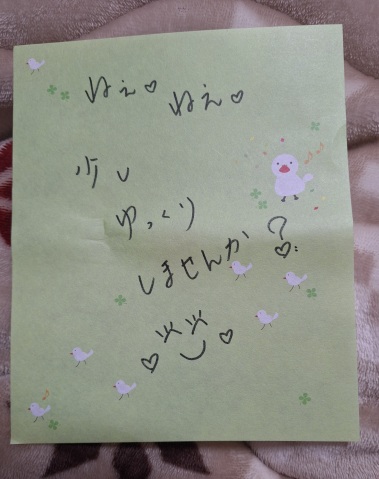 ねぇ♡ ねぇ♡
少し
ゆっくり
しませんか?♡